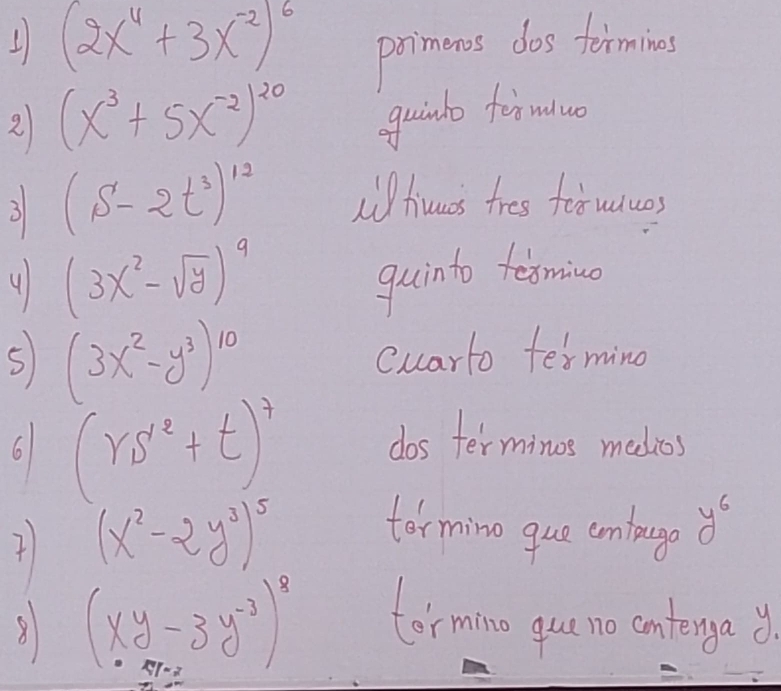 1) (2x⁴ + 3x⁻²)⁶ primeros dos términos
2) (x³ + 5x⁻²)²⁰ quinto término
3) (S - 2t³)¹² últimos tres términos
4) (3x² - √y)⁹ quinto término
5) (3x² - y³)¹⁰ cuarto término
6) (rs² + t)⁷ dos términos medios
7) (x² - 2y³)⁵ término que contenga y⁶
8) (xy - 3y⁻³)⁸ término que no contenga y.